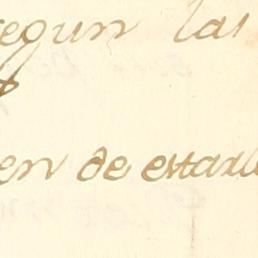 segun las
en de estar